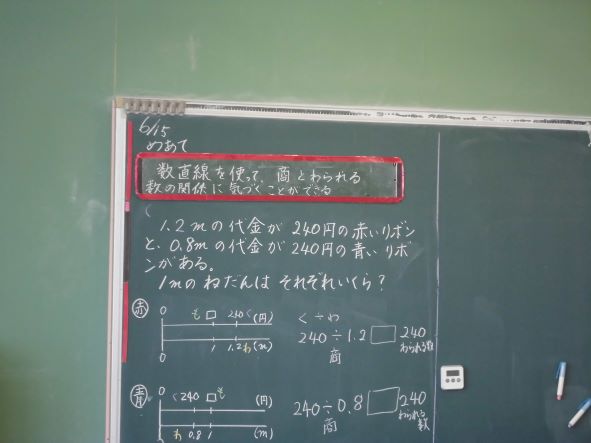 6/15
めあて
数直線を使って、商とわられる
数の関係に気づくことができる
1.2mの代金が240円の赤いリボン
と、0.8mの代金が240円の青いリボ
ンがある。
1mのねだんはそれぞれいくら?
赤
0 も □ 240 く (円)
0 1 1.2 わ (m)
く÷わ
240÷1.2 □ 240
商 わられる数
青
0 く 240 □ も (円)
0 わ 0.8 1 (m)
240÷0.8 □ 240
商 わられる
数